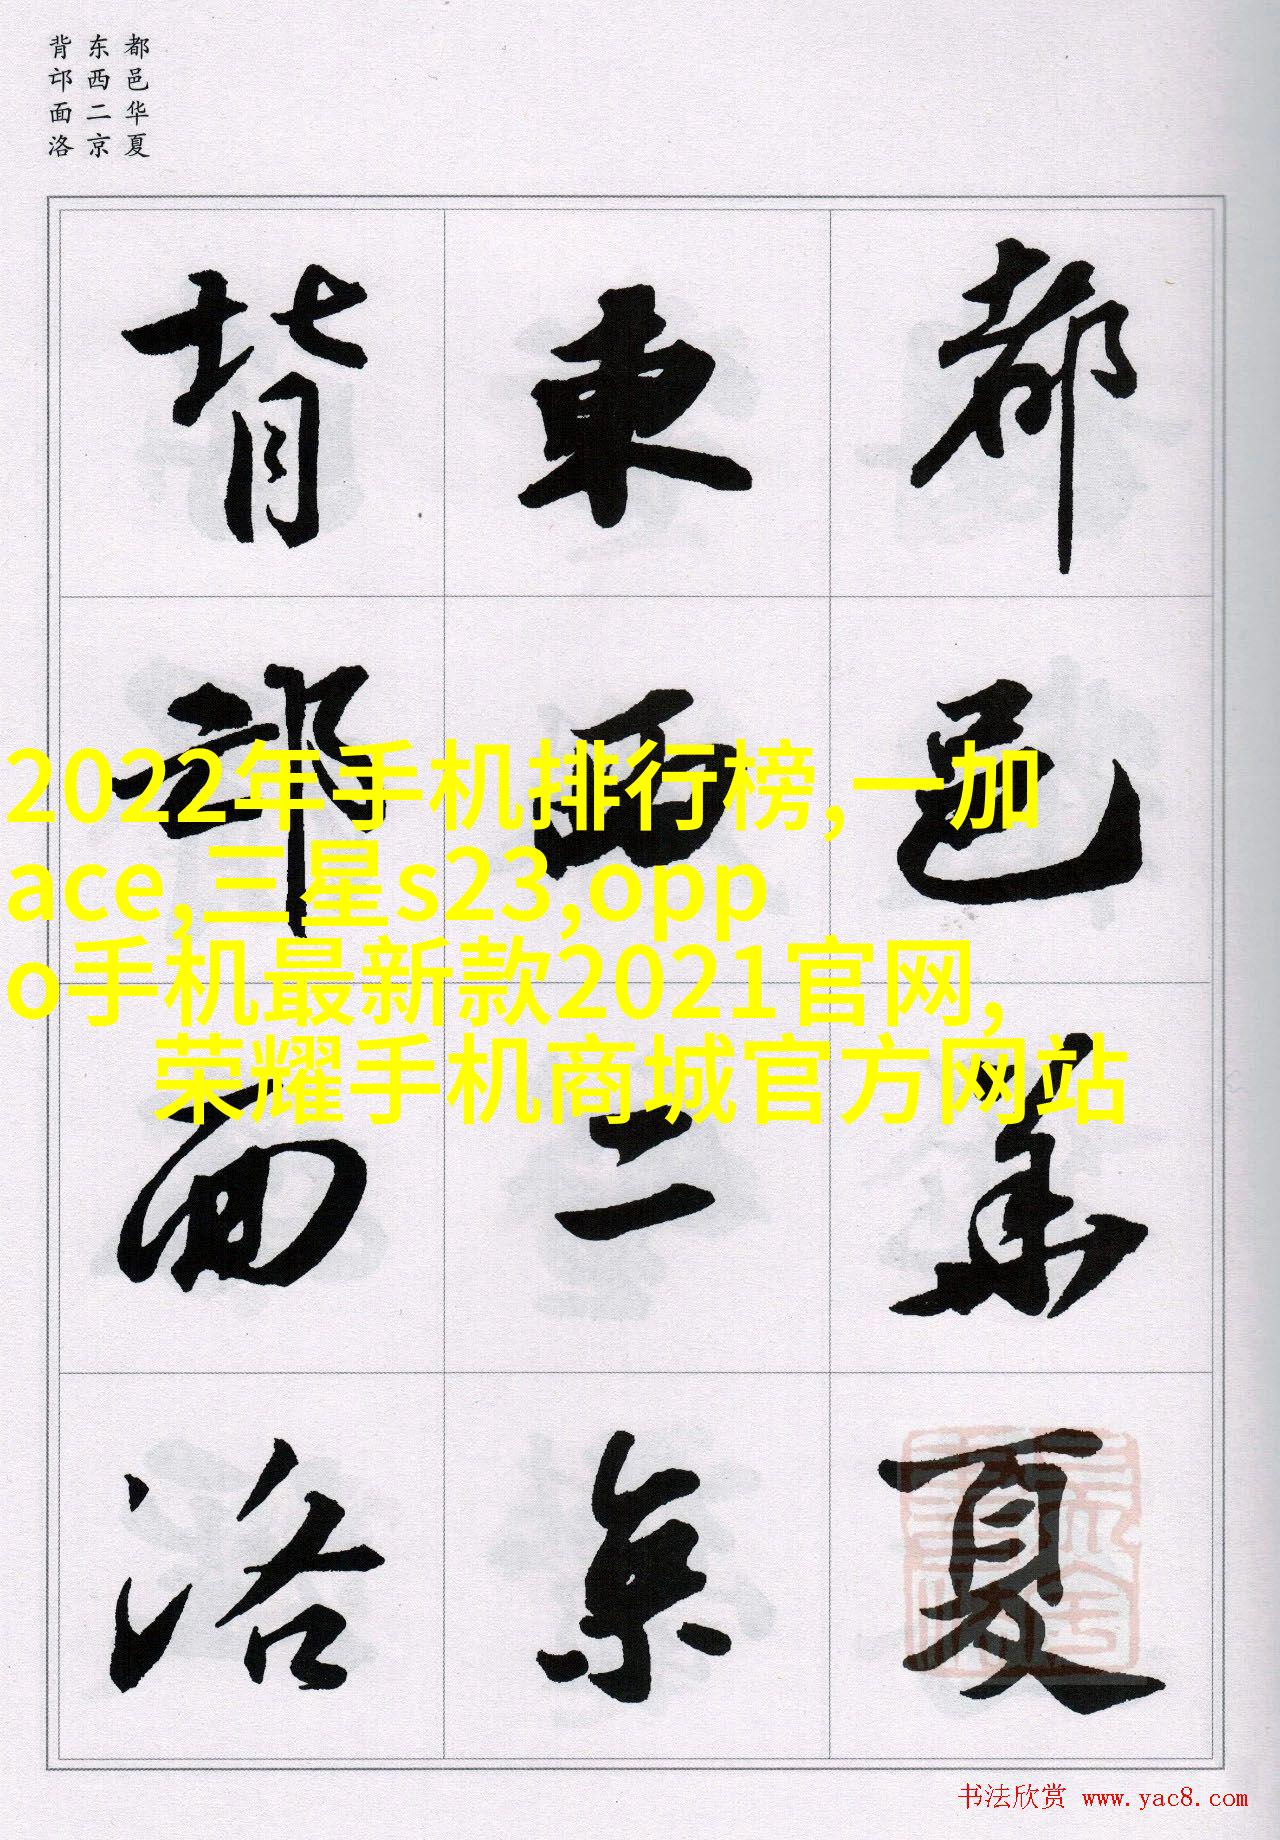 都邑华夏
东西二京
背邙面洛
都邑華夏
東西二京
背邙面洛
2022年手机排行榜,一加
ace,三星s23,opp
o手机最新款2021官网,
荣耀手机商城官方网站
书法欣赏 www.yac8.com